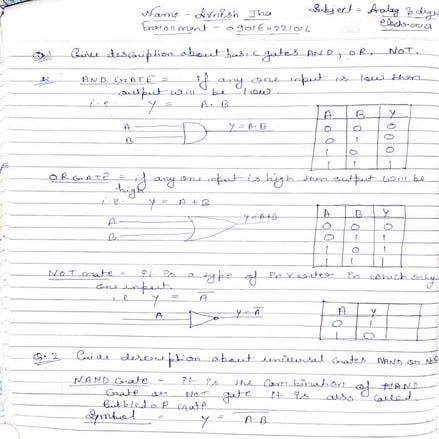 Name - Avnish Jha Subject = Analog & digi
Enrollment - 0901 electronics
Q.1 Give description about basic gates AND, OR, NOT.
AND GATE = if any one input is low then
output will be low.
i.e Y = A.B
A
B
Y=A.B
A B Y
0 0 0
0 1 0
1 0 0
1 1 1
OR GATE = if any one input is high then output will be
high
i.e. Y = A+B
A
B
Y=A+B
A B Y
0 0 0
0 1 1
1 0 1
1 1 1
NOT Gate = it is a type of inverter in which only
one input.
i.e Y = A̅
A
Y=A̅
A Y
0 1
1 0
Q.2 Give description about universal Gates NAND or
NAND Gate - it is the combination of
Gate or NOT gate it is also called
Bubbled OR Gate
Symbol = Y = A̅.̅B̅